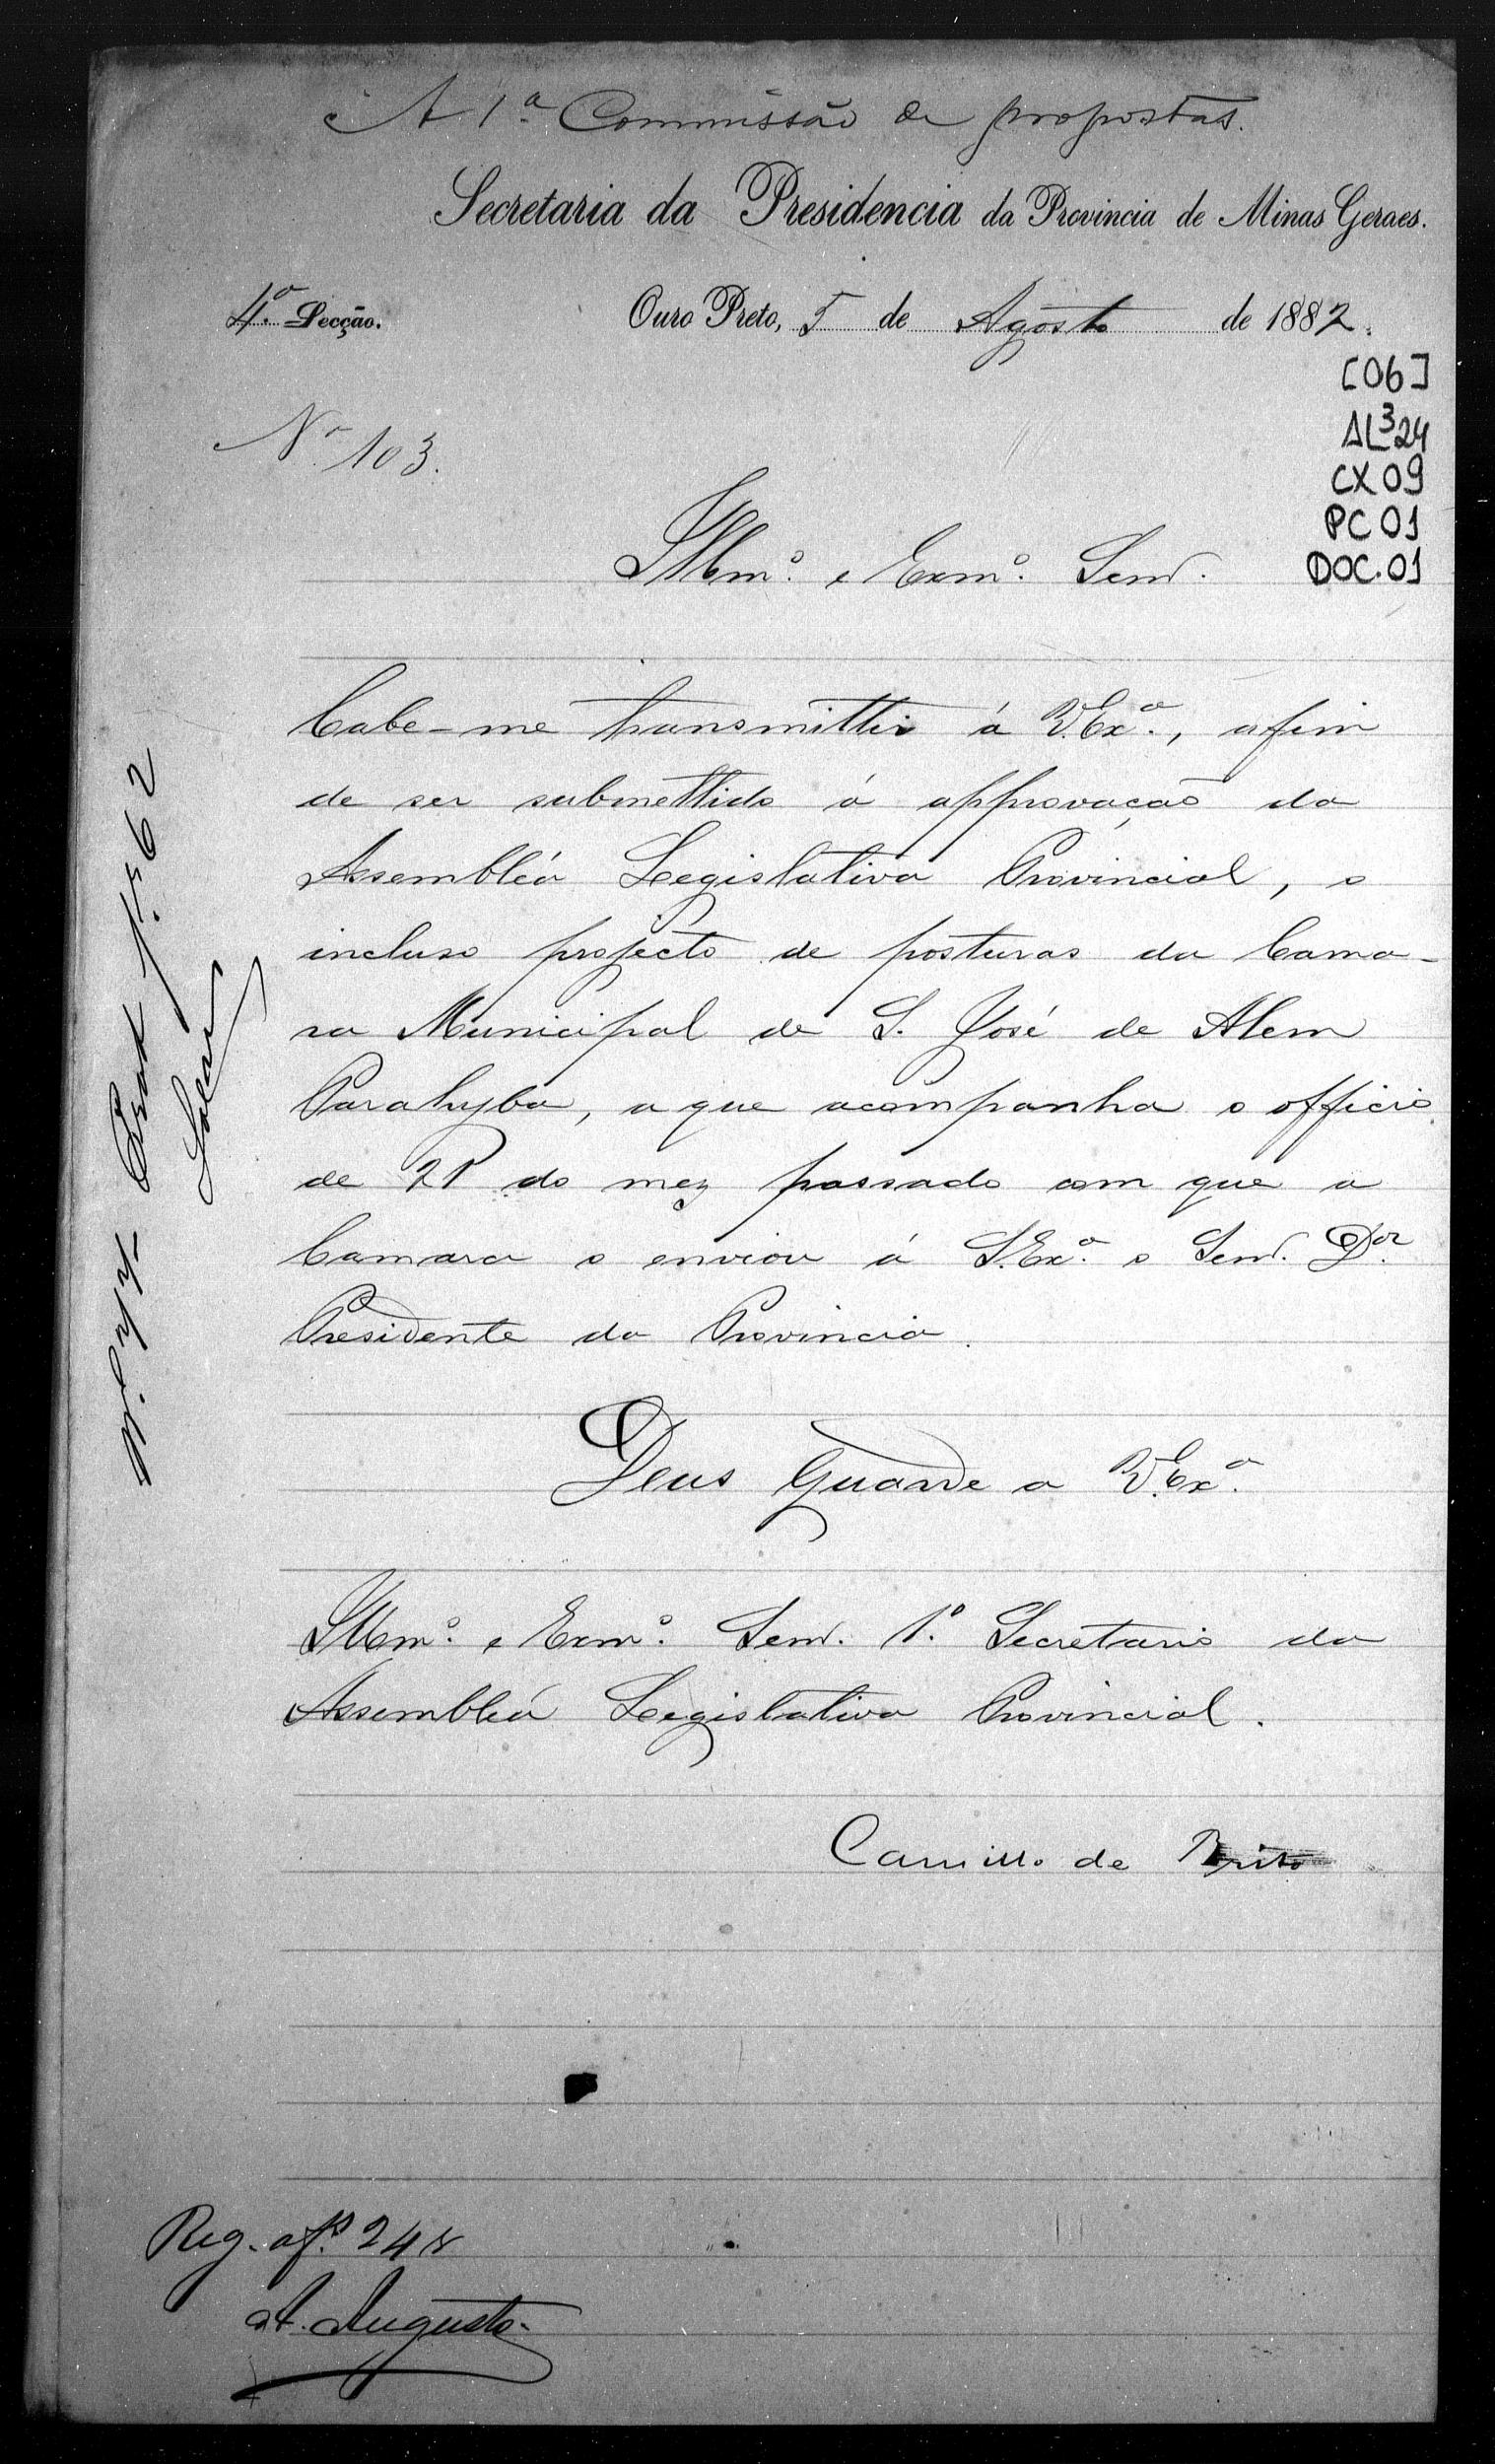 A 1ª Commissão de propostas.
Secretaria da Presidencia da Provincia de Minas Geraes.
4ª Secção.
Ouro Preto, 5 de Agosto de 1882.
[06]
AL³24
CX 09
PC 01
DOC. 01
Nº 103.
Illmº. e Exmº. Senr.
Cabe-me transmittir á V.Exª., afim
de ser submettido á approvação da
Assembléa Legislativa Provincial, o
incluso projecto de posturas da Cama-
ra Municipal de S. José de Alem
Parahyba, a que acompanha o officio
de 21 do mez passado com que a
Camara o enviou á S.Exª. o Senr. Dor.
Presidente da Provincia.
Deus Guarde a V.Exª.
Illmº. e Exmº. Senr. 1º. Secretario da
Assembléa Legislativa Provincial.
Camillo de Brito
Reg. a fs. 248
A. Augusto.